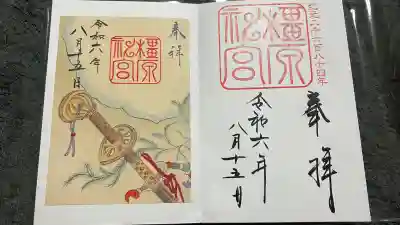 紀元二千六百八十四年
奉拝
橿原
神宮
令和六年
八月十五日
奉拝
橿原
神宮
令和六年
八月十五日